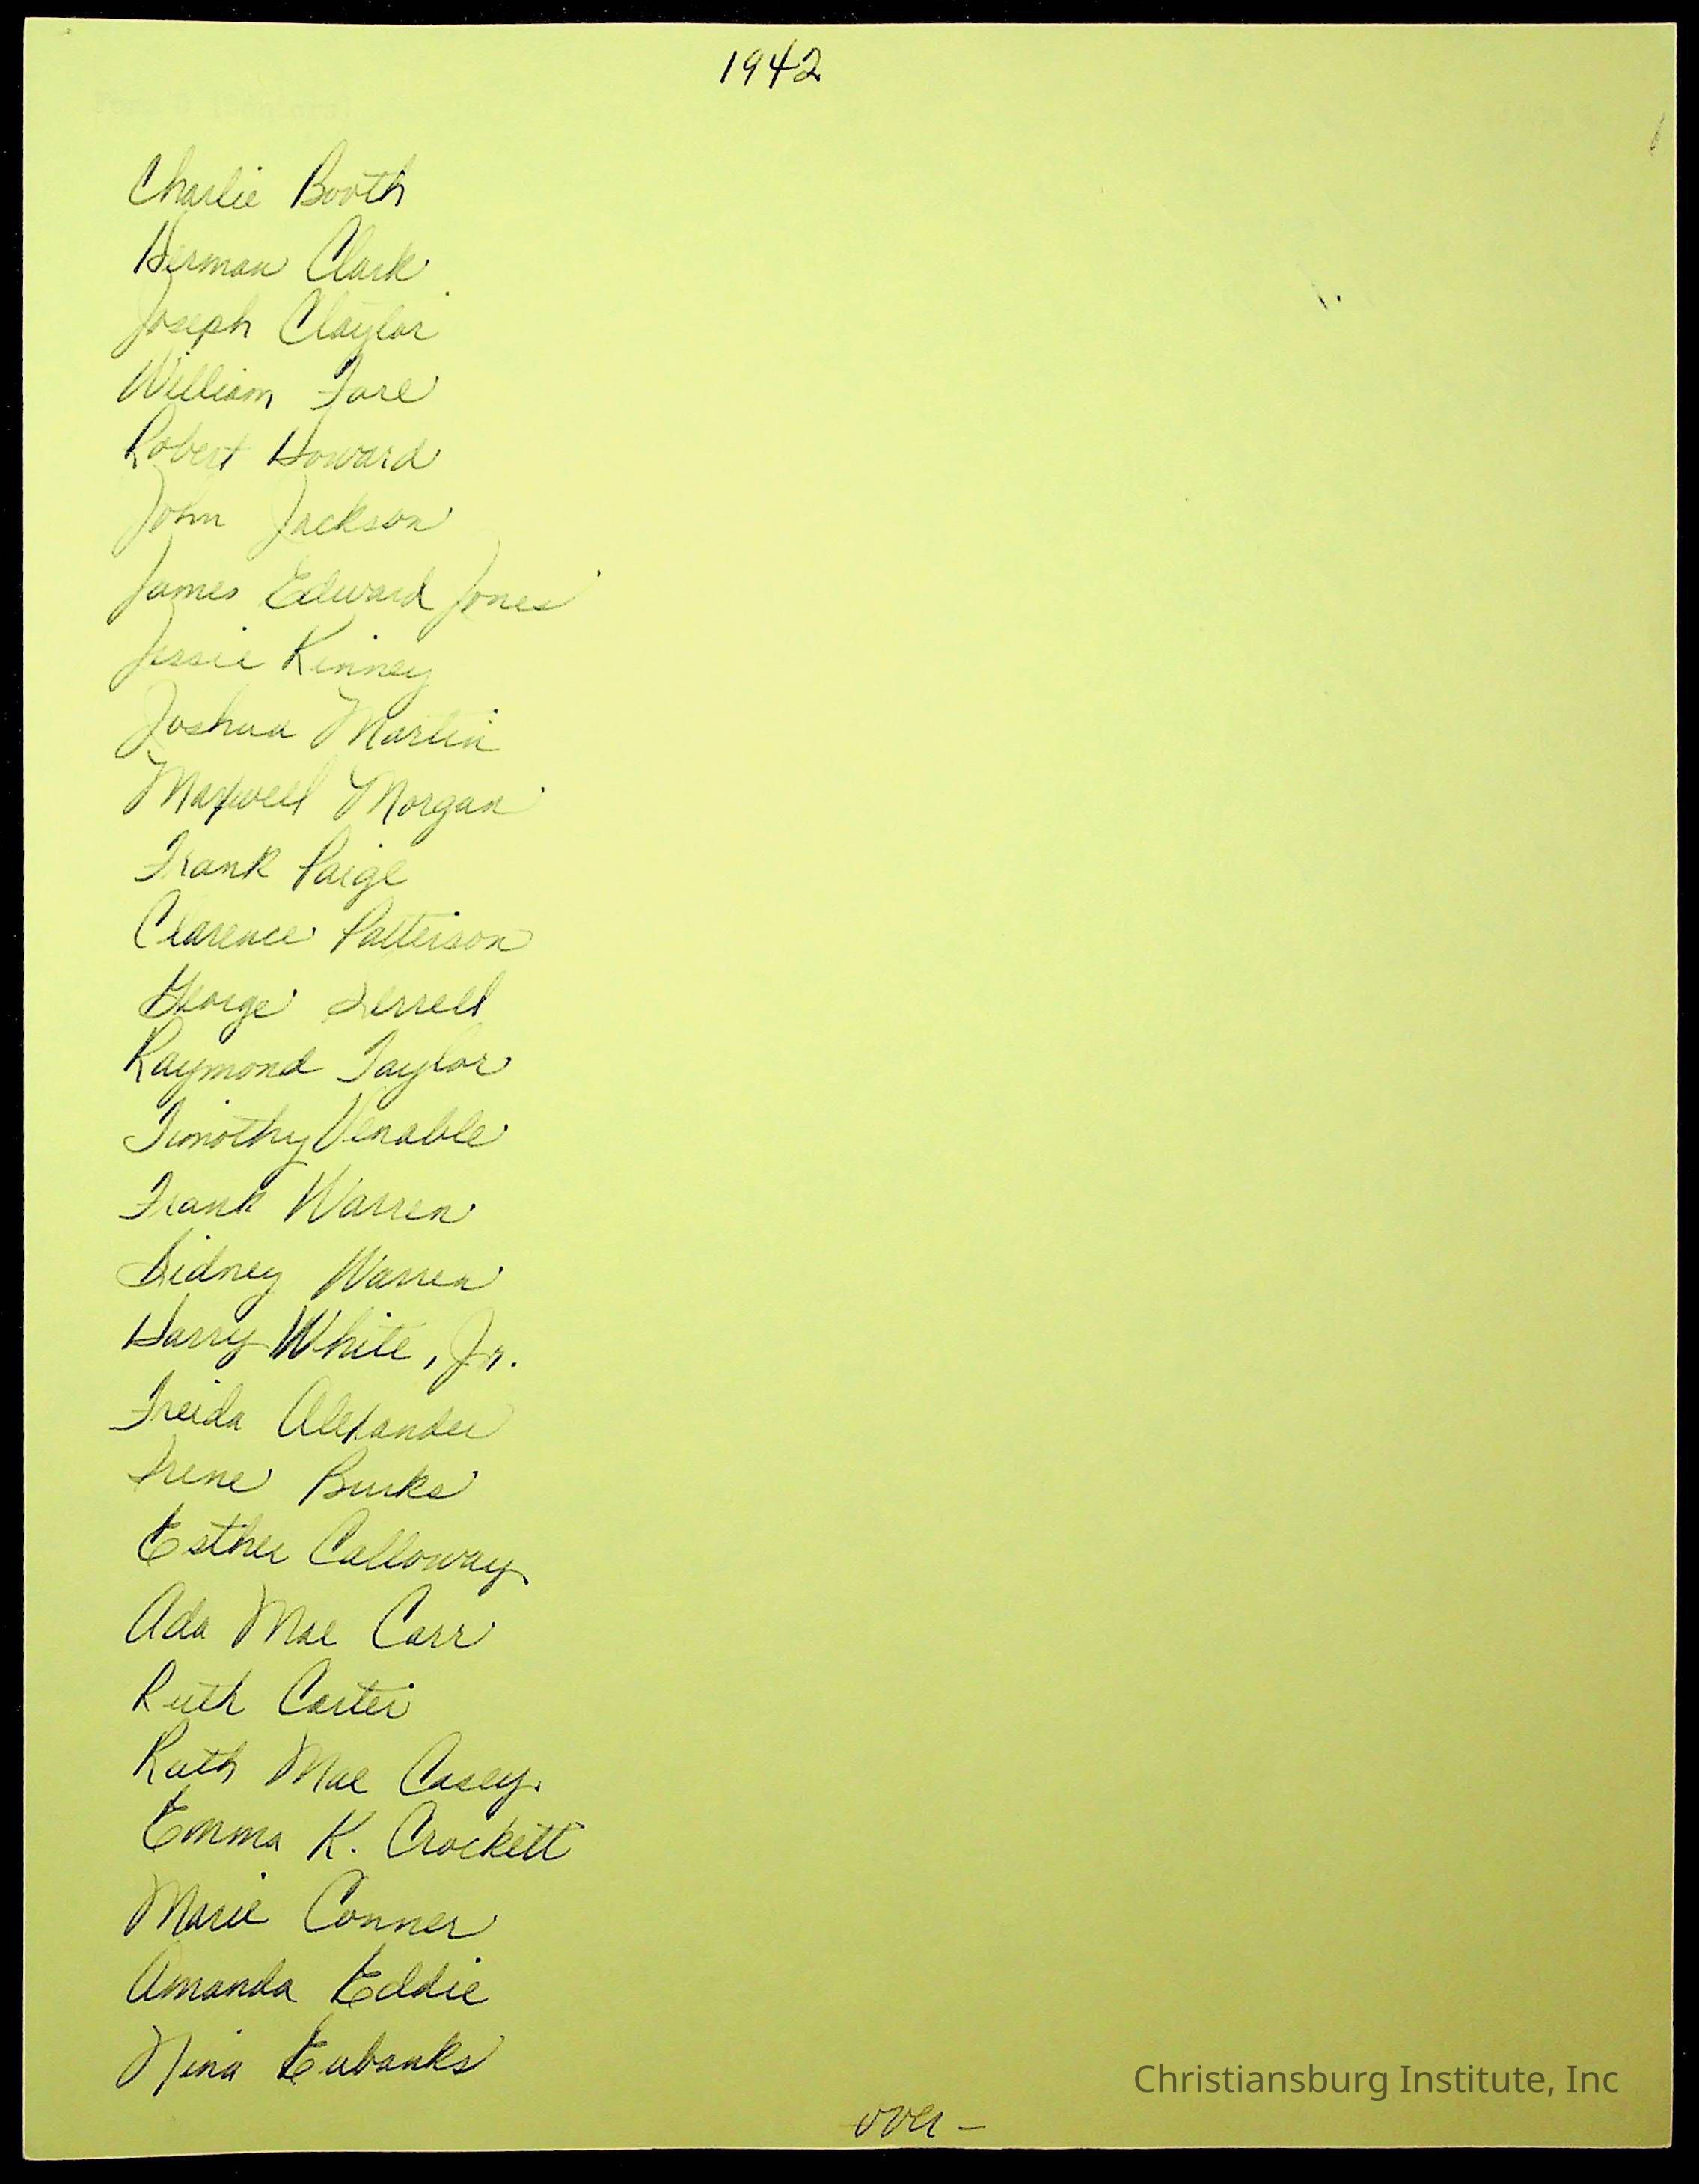 1942
Charlie Booth
Herman Clark
Joseph Claytor
William Fore
Robert Howard
John Jackson
James Edward Jones
Jessie Kinney
Joshua Martin
Maxwell Morgan
Frank Paige
Clarence Patterson
George
Raymond Taylor
Timothy Venable
Frank Warren
Sidney Warren
Harry White, Jr.
Freida Alexander
Irene Burks
Esther Calloway
Ada Mae Carr
Ruth Carter
Ruth Mae Casey
Emma K. Crockett
Marie Conner
Amanda Eddie
Nina Eubanks
Christiansburg Institute, Inc
over –